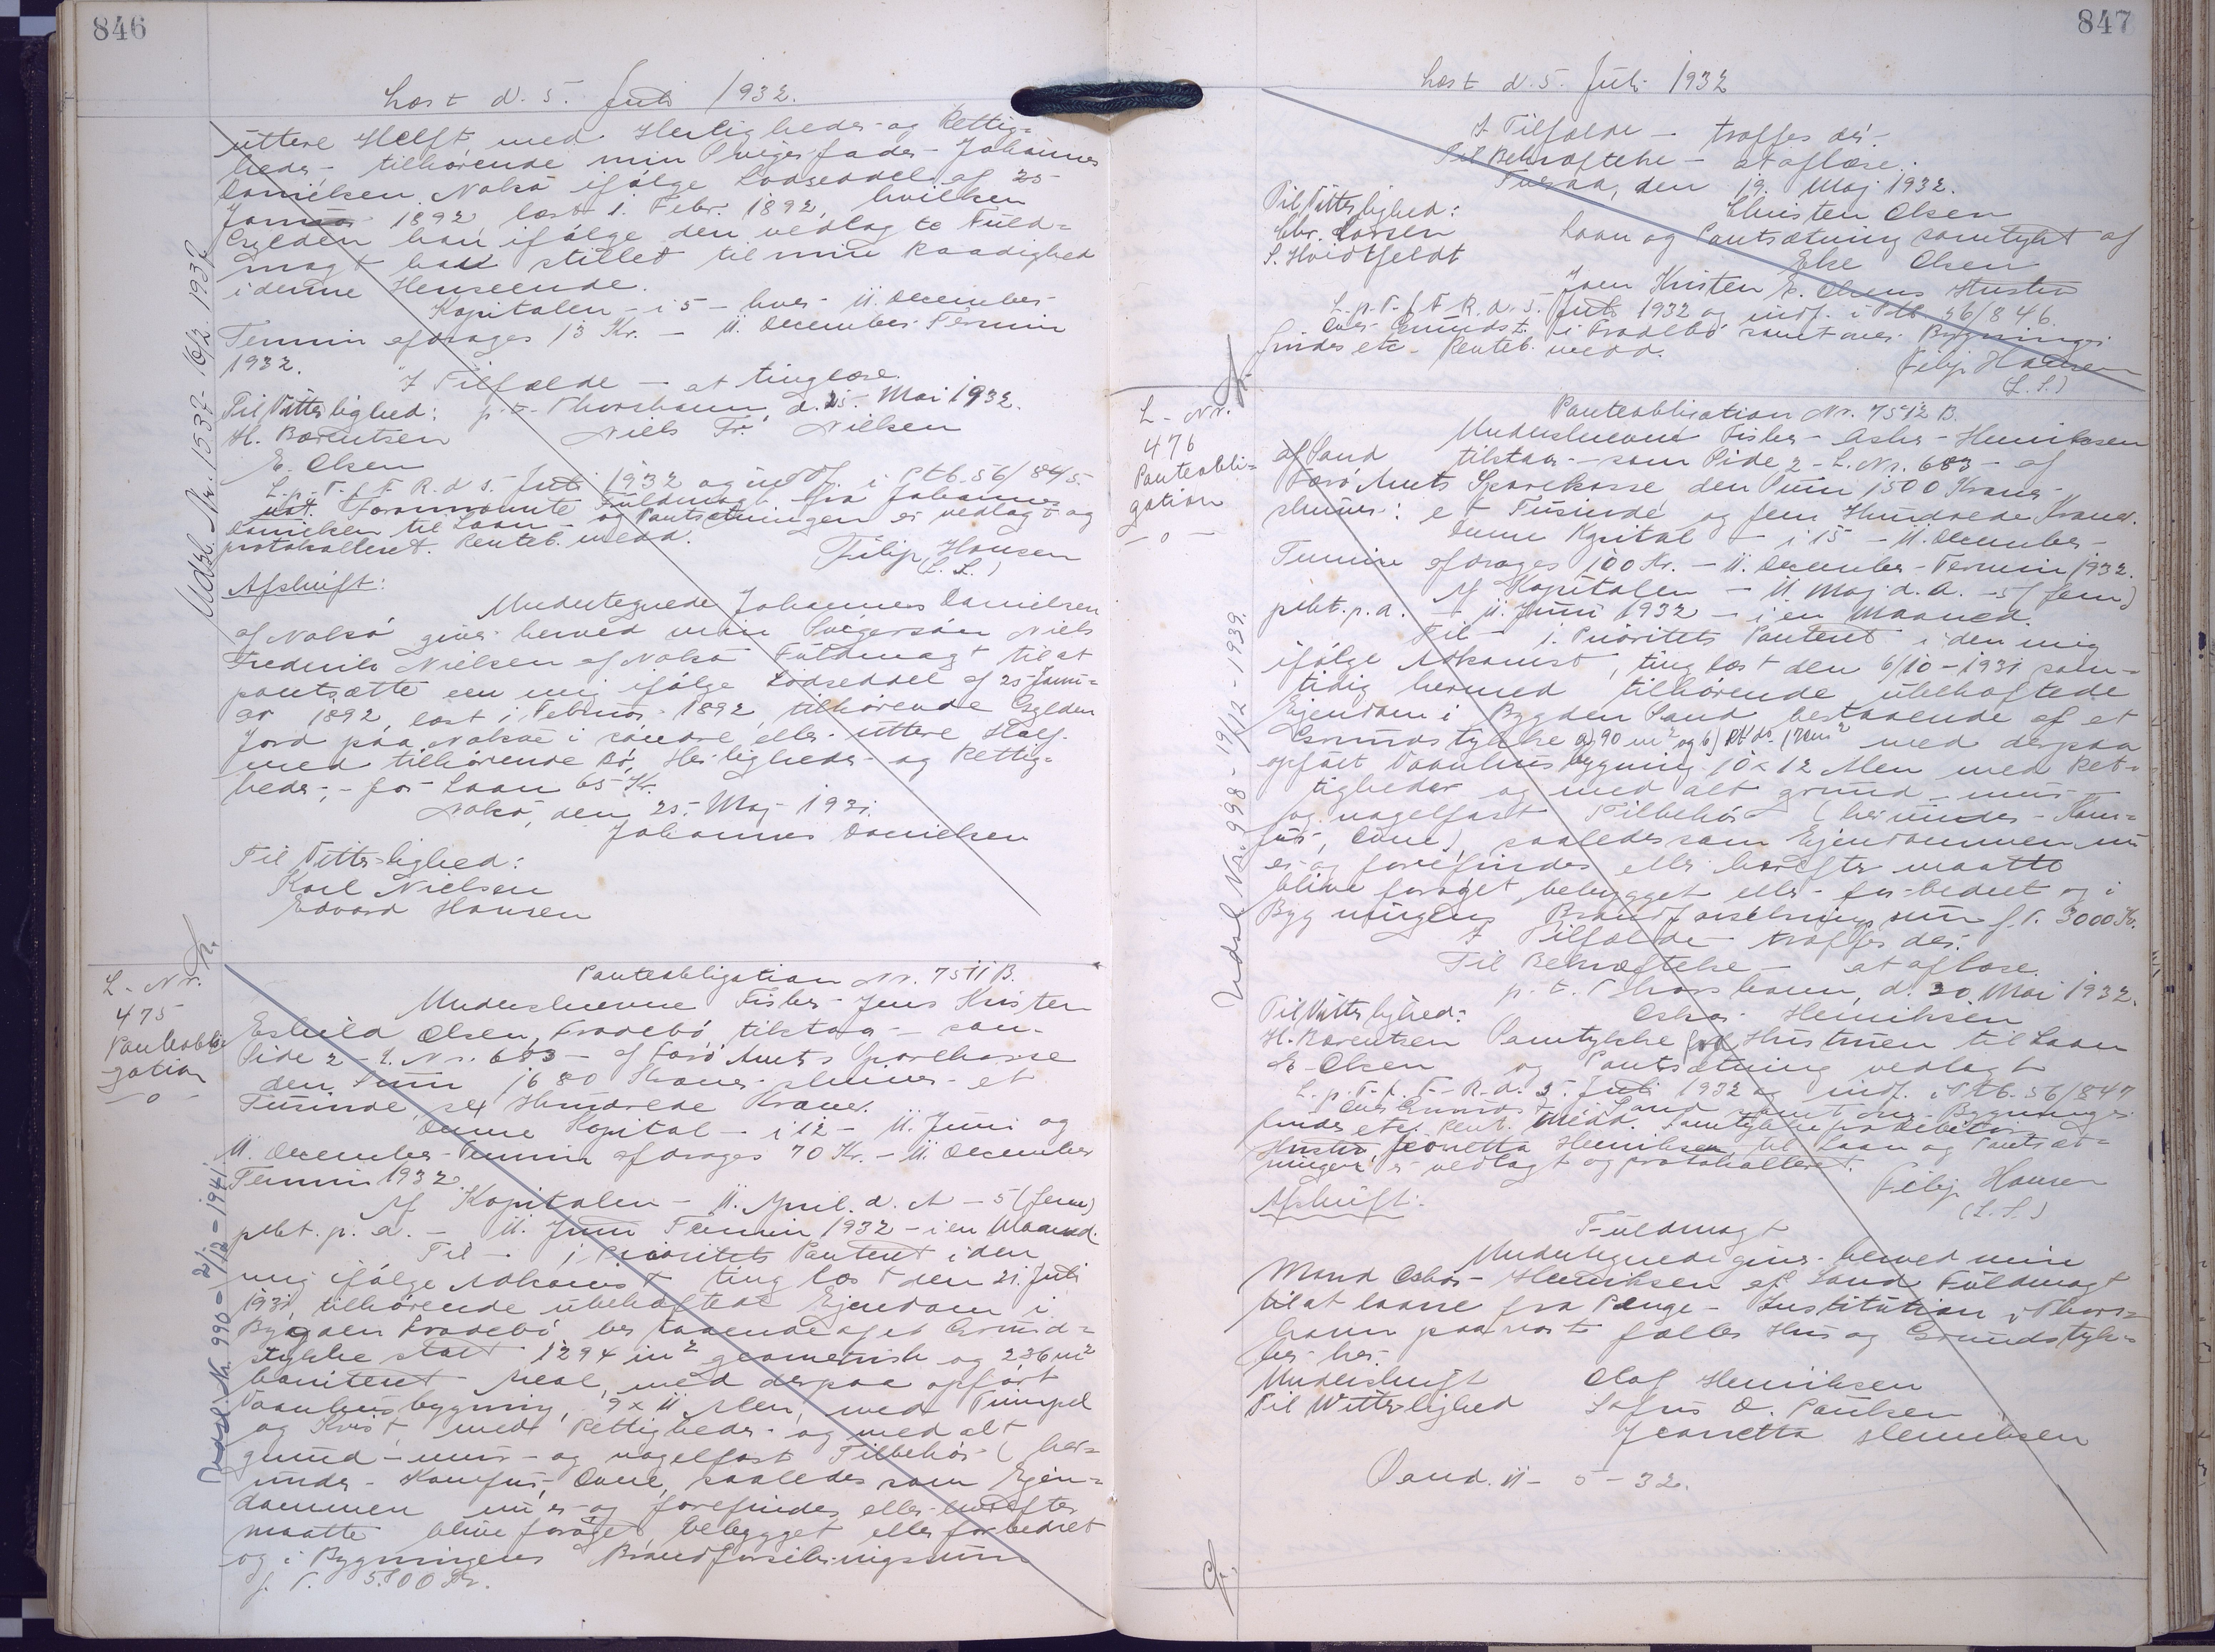 846
Læst d. 5. Juli 1932.
uttere Helft med Herligheder og Rettig=
heder - tilhørende min Svigerfader Johannes
Danielsen Nolsø ifølge Lodseddel af 25
Januar 1892 læst 1. Febr. 1892, hvilken
Gylden han ifølge den vedlagte Fuld=
magt har stillet til min Raadighed
i denne Henseende.
Kapitalen - i 5 - hver 11. December
Termin afdrages 13 Kr. - 11. December Termin
1932.
I Tilfælde - at tinglæse.
Til Vitterlighed: p.t. Thorshavn, d. 25. Mai 1932.
H. Barentsen Niels Fr. Nielsen
E. Olsen
L. p. T. f. F. R. d. 5. Juli 1932 og indf. i Ptb. 56/845.
Fornævnte Fuldmagt fra Johannes
Danielsen til Laan - og Pantsætningen er vedlagt og
protokolleret. Renteb. medd.
Filip Hansen
(L. S.)
Afskrift:
Undertegnede Johannes Danielsen
af Nolsø giver herved min Svigersøn Niels
Frederik Nielsen af Nolsø Fuldmagt til at
pantsætte een mig ifølge Lodseddel af 25 Janu=
ar 1892, læst i Februar 1892, tilhørende Gylden
Jord paa Nolsø i søndre eller uttere Halv
med tilhørende Lø, Herligheder og Rettig=
heder, - for Laan 65 Kr.
Nolsø, den 25. Maj 1931.
Johannes Danielsen
Til Vitterlighed:
Karl Nielsen
Edvard Hansen
Udsl. Nr. 1537 - 16/2 1937
L. Nr.
475
Panteobli
gation
- o -
Panteobligation Nr. 7511 B.
Underskrevne Fisker Jens Kristen
Eskild Olsen, Frodebø, tilstaar - som
Side 2 - L. Nr. 683 - af Færø Amts Sparekasse
den Sum 1680 Kroner skriver et
Tusinde sex Hundrede Kroner.
Denne Kapital - i 12 - 11. Juni og
11. December Termin afdrages 70 Kr. - 11. December
Termin 1932.
Af Kapitalen - 11. April d. A - 5 (fem)
pCt. p. a. - 11. Juni Termin 1932 - i en Maaned.
Til - 1 Prioritets Panteret i den
mig ifølge Adkomst tinglæst den 21. Juli
1931, tilhørende ubehæftede Ejendom i
Bygden Frodebø bestaaende af et Grund=
stykke stort 1294 m² geometrisk og 236 m²
boniteret Areal, med derpaa opført
Vaanhusbygning, 9 x 11 Alen, med Timpel
og Kvist med Rettigheder og med alt
grund - mur - og nagelfast Tilbehør (her=
under Komfur, Ovne, saaledes som Ejen=
dommen nu er og forefindes eller herefter
maatte blive forøget, bebygget eller forbedret
og i Bygningens Brandforsikringssum
f. T. 5.800 Kr.
Udsl. Nr. 990 - 2/12 - 1941
847
Læst d. 5. Juli 1932
I Tilfælde - træffes der.
Til Bekræftelse - at aflæse.
den 19. Maj 1932.
Til Vitterlighed: Christen Olsen
Chr. Larsen Laan og Pantsætning samtykt af
S. Hvidtfeldt Else Olsen
Jens Kristen E. Olsens Hustru
L. p. T. f. F. R. d. 5. Juli 1932 og indf. i Ptb. 56/846.
Over Grundst. i Frodebø samt over Bygninger
findes etc. Renteb. medd.
Filip Hansen
(L. S.)
L. Nr.
476
Panteobli=
gation
- o -
Panteobligation Nr. 7512 B.
Underskrevne Fisker Oskar Henriksen
af Sand tilstaar - som Side 2 - L. Nr. 683 - af
Færø Amts Sparekasse den Sum 1500 Kroner
skriver: et Tusinde og fem Hundrede Kroner.
Denne Kapital - i 15 - 11. December
Termin afdrages 100 Kr. - 11. December Termin 1932.
Af Kapitalen - 11. Maj d. A. - 5 (fem)
pCt. p. a. - 11. Juni 1932 - i en Maaned.
Til - 1. Prioritets Panteret i den mig
ifølge Adkomst, tinglæst den 6/10 - 1931 sam=
tidig hermed tilhørende ubehæftede
Ejendom i Bygden Sand bestaaende af et
Grundstykke a) 90 m² og b) do. 170 m² med derpaa
opført Vaanhusbygning 10 x 12 Alen med Ret=
tigheder og med alt grund - mur -
og nagelfast Tilbehør (herunder Kom=
fur, Ovne), saaledes som Ejendommen nu
er og forefindes eller herefter maatte
blive forøget, bebygget eller forbedret og i
Bygningens Brandforsikringssum f. T. 3000 Kr.
I Tilfælde træffes der.
Til Bekræftelse - at aflæse.
p. t. Thorshavn, d. 20. Mai 1932.
Til Vitterlighed: Oskar Henriksen
H. Barentsen Samtykke fra Hustruen til Laan
E. Olsen og Pantsætning vedlagt
L. p. T. f. F. R. d. 5. Juli 1932 og indf. i Ptb. 56/847
Over Grundst. i Sand samt over Bygninger
findes etc. Rent. Medd. Samtykke fra Debitors
Hustru, Jeanetta Henriksen til Laan og Pantsæt=
ningen er vedlagt og protokolleret.
Filip Hansen
(L. S.)
Afskrift:
Fuldmagt
Undertegnede giver herved min
Mand Oskar Henriksen af Sand Fuldmagt
til at laane fra Penge - Institution i Thors=
havn paa vort fælles Hus og Grundstyk=
ker her.
Underskrift Olaf Henriksen
Til Witterlighed Sofus O. Poulsen
Jeanetta Henriksen
Sand. 11 - 5 - 32.
Udsl. Nr. 998 - 19/12 - 1939.